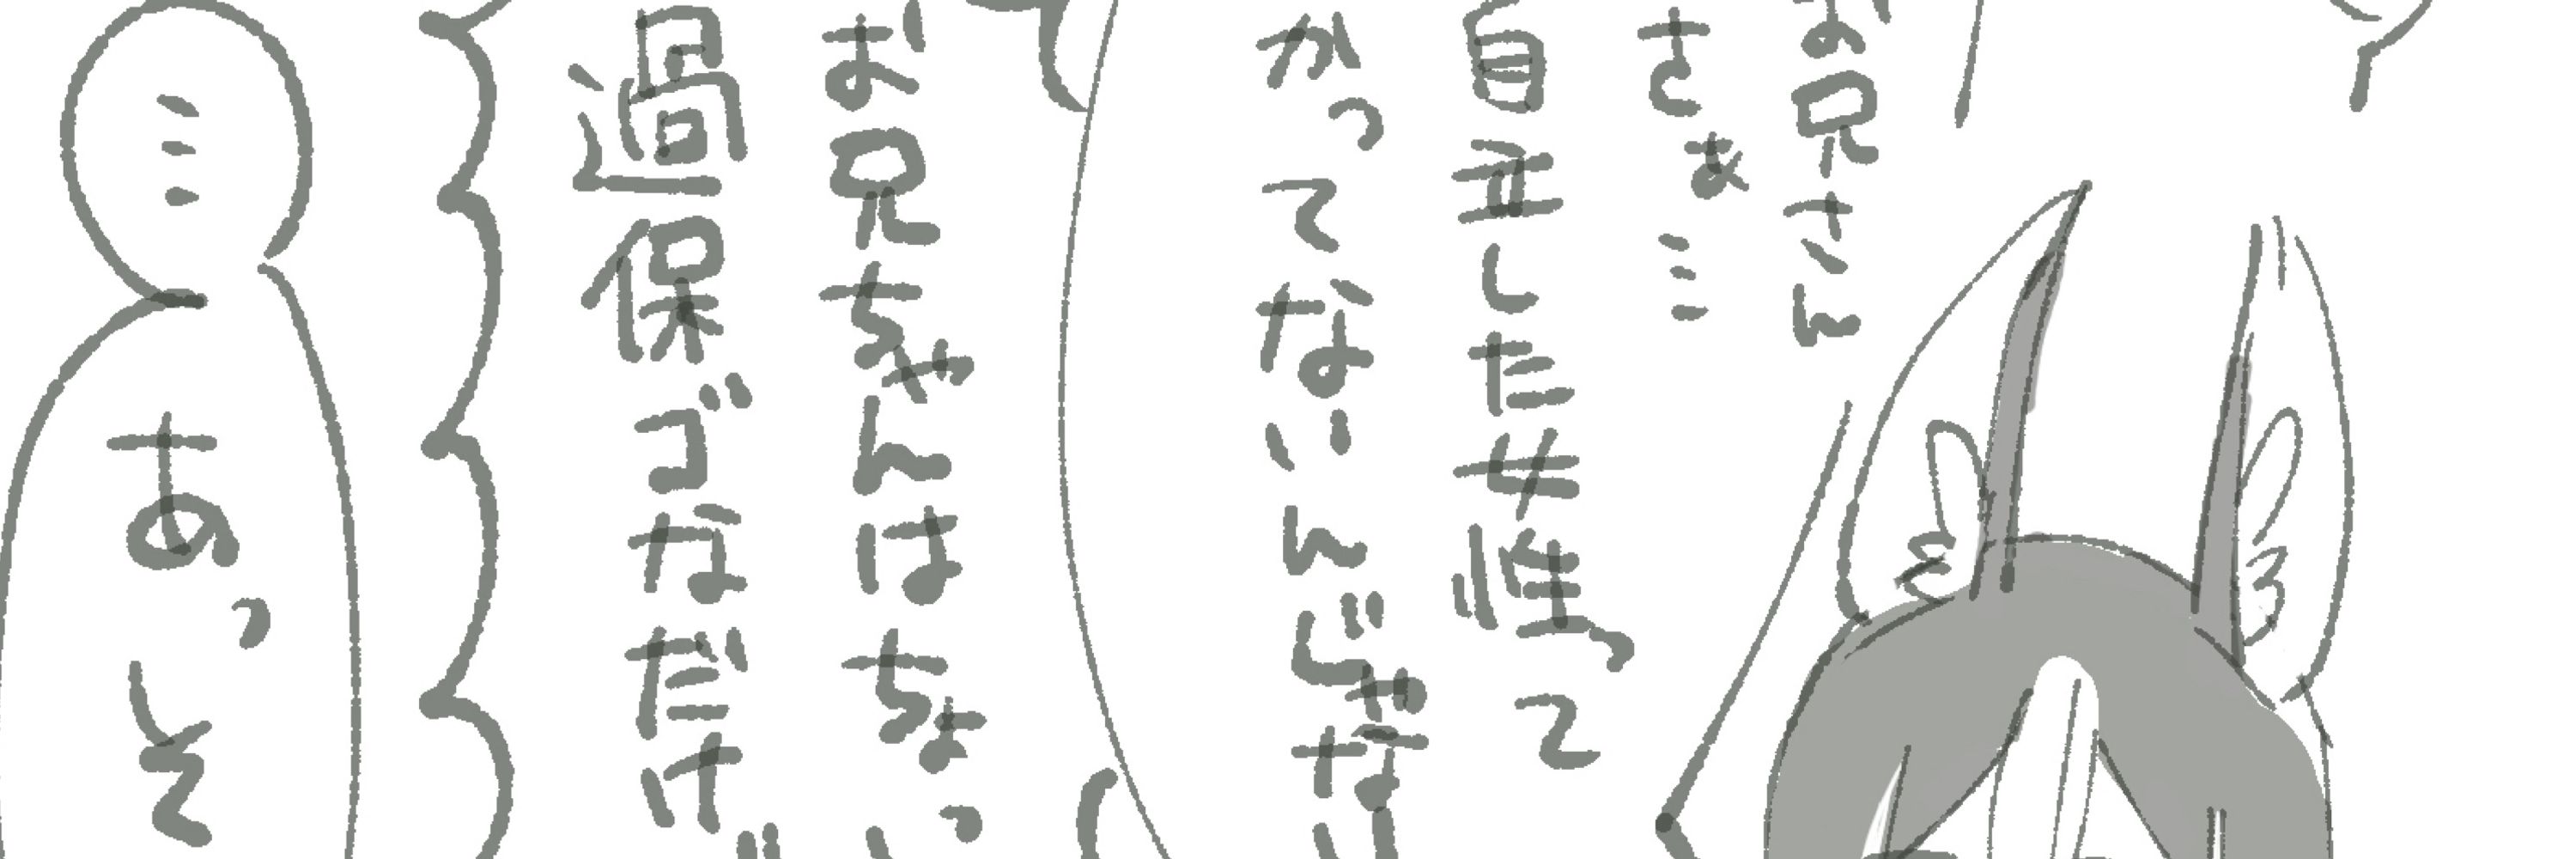 お兄さん
さぁ…
自立した女性って
かってないんじゃない
お兄ちゃんはちょっ
過保ゴなだけ
…
あっそ